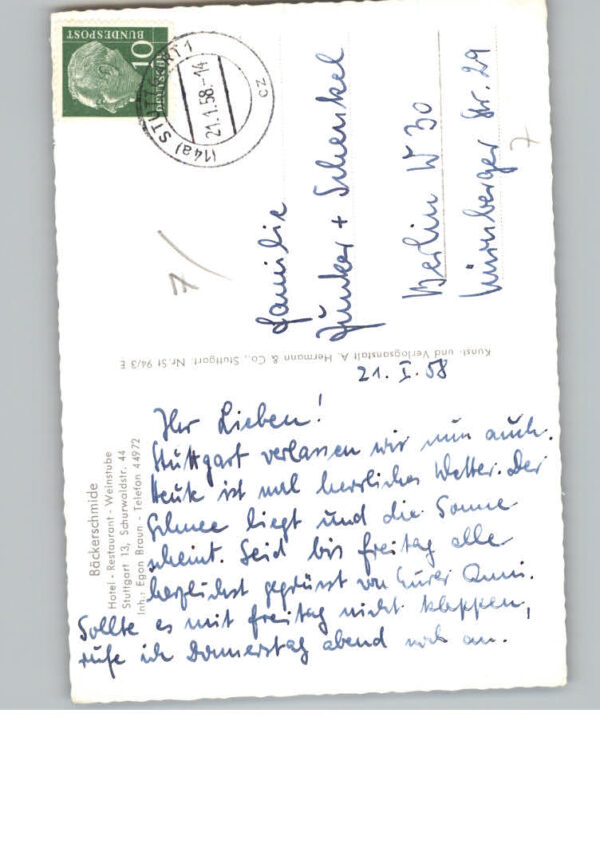 BUNDESPOST
10
DEUTSCHE
(14a) STUTTGART 1
21.1.58.-14
cz
Familie
Junker + Schenkel
Berlin W 30
Nürnberger Str. 29
7
7/
Kunst- und Verlagsanstalt A. Hermann & Co., Stuttgart. Nr. St 94/3 E
Bäckerschmide
Hotel - Restaurant - Weinstube
Stuttgart 13, Schurwaldstr. 44
Inh.: Egon Braun - Telefon 44972
21. I. 58
Ihr Lieben!
Stuttgart verlassen wir nun auch.
Heute ist mal herrliches Wetter. Der
Schnee liegt und die Sonne
scheint. Seid bis Freitag alle
herzlichst gegrüsst von Eurer Anni.
Sollte es mit Freitag nicht klappen,
rufe ich Donnerstag abend noch an.